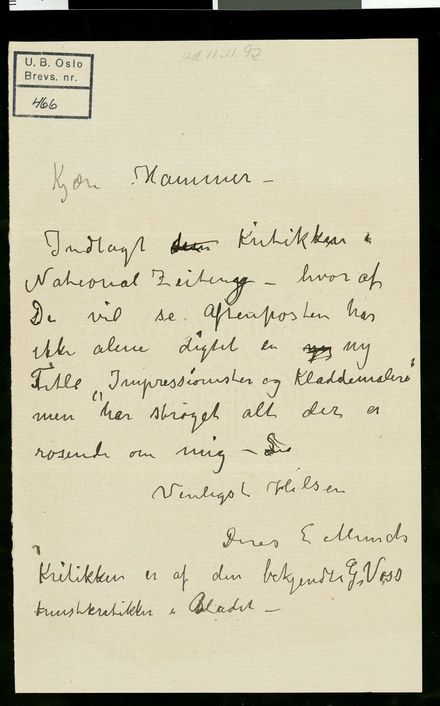 ad 11.11.92.
U. B. Oslo
Brevs. nr.
466
Kjære Hammer –
Indlagt den Kritikken i
National Zeitung – hvor af
De vil se Aftenposten har
ikke alene digtet en ny ny
Titel „Impressionister og Kladdemalere“
men har strøget alt der er
rosende om mig – De
Venligst Hilsen
Deres E Munch
Kritikken er af den bekjendte G, Voss
kunstkritikker i Bladet –